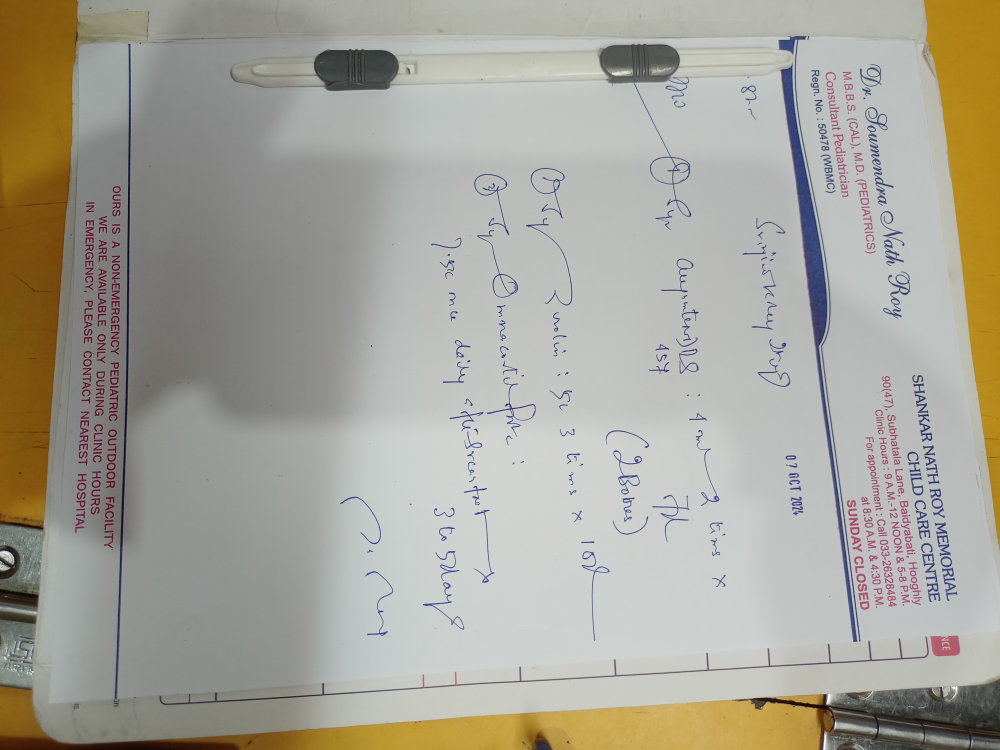 Dr. Soumendra Nath Roy
M.B.B.S. (CAL), M.D. (PEDIATRICS)
Consultant Pediatrician
Regn. No. : 50478 (WBMC)
SHANKAR NATH ROY MEMORIAL
CHILD CARE CENTRE
90(47), Subhatala Lane, Baidyabati, Hooghly
Clinic Hours : 9 A.M.-12 NOON & 5-8 P.M.
For appointment : Call 033-26328484
at 8:30 A.M. & 4:30 P.M.
SUNDAY CLOSED
07 OCT 2024
① Syp DDS : 4 ml 2 times x
457
(2 Bottles)
② Syp : 5cc 3 times x 10d
③ Syp Omnacortil forte :
7.5cc once daily after breakfast
3 to 5 days
OURS IS A NON-EMERGENCY PEDIATRIC OUTDOOR FACILITY
WE ARE AVAILABLE ONLY DURING CLINIC HOURS
IN EMERGENCY, PLEASE CONTACT NEAREST HOSPITAL